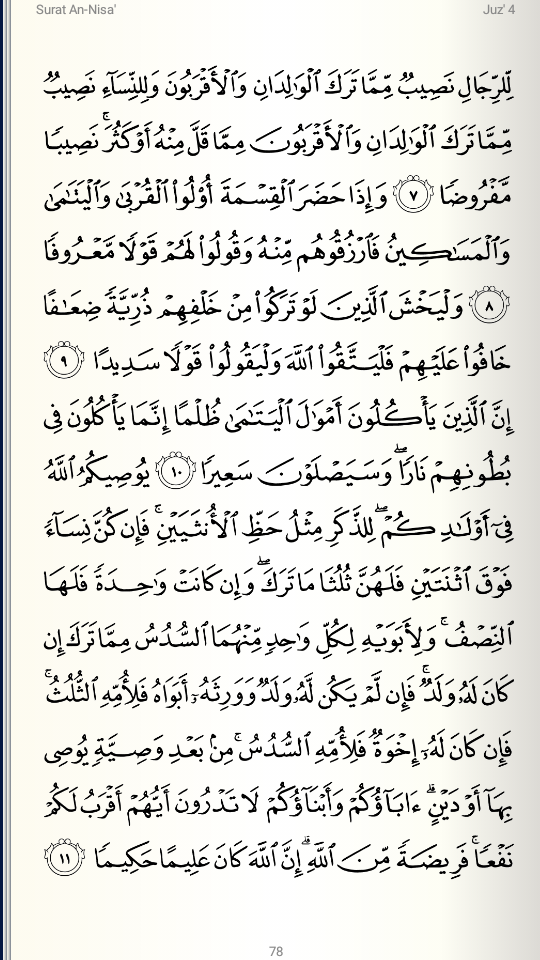 Surat An-Nisa' Juz' 4
لِّلرِّجَالِ نَصِيبٌ مِّمَّا تَرَكَ ٱلْوَٰلِدَانِ وَٱلْأَقْرَبُونَ وَلِلنِّسَآءِ نَصِيبٌ
مِّمَّا تَرَكَ ٱلْوَٰلِدَانِ وَٱلْأَقْرَبُونَ مِمَّا قَلَّ مِنْهُ أَوْ كَثُرَ ۚ نَصِيبًا
مَّفْرُوضًا ٧ وَإِذَا حَضَرَ ٱلْقِسْمَةَ أُو۟لُوا۟ ٱلْقُرْبَىٰ وَٱلْيَتَـٰمَىٰ
وَٱلْمَسَـٰكِينُ فَٱرْزُقُوهُم مِّنْهُ وَقُولُوا۟ لَهُمْ قَوْلًا مَّعْرُوفًا
٨ وَلْيَخْشَ ٱلَّذِينَ لَوْ تَرَكُوا۟ مِنْ خَلْفِهِمْ ذُرِّيَّةً ضِعَـٰفًا
خَافُوا۟ عَلَيْهِمْ فَلْيَتَّقُوا۟ ٱللَّهَ وَلْيَقُولُوا۟ قَوْلًا سَدِيدًا ٩
إِنَّ ٱلَّذِينَ يَأْكُلُونَ أَمْوَٰلَ ٱلْيَتَـٰمَىٰ ظُلْمًا إِنَّمَا يَأْكُلُونَ فِى
بُطُونِهِمْ نَارًا ۖ وَسَيَصْلَوْنَ سَعِيرًا ١٠ يُوصِيكُمُ ٱللَّهُ
فِىٓ أَوْلَـٰدِكُمْ ۖ لِلذَّكَرِ مِثْلُ حَظِّ ٱلْأُنثَيَيْنِ ۚ فَإِن كُنَّ نِسَآءً
فَوْقَ ٱثْنَتَيْنِ فَلَهُنَّ ثُلُثَا مَا تَرَكَ ۖ وَإِن كَانَتْ وَٰحِدَةً فَلَهَا
ٱلنِّصْفُ ۚ وَلِأَبَوَيْهِ لِكُلِّ وَٰحِدٍ مِّنْهُمَا ٱلسُّدُسُ مِمَّا تَرَكَ إِن
كَانَ لَهُۥ وَلَدٌ ۚ فَإِن لَّمْ يَكُن لَّهُۥ وَلَدٌ وَوَرِثَهُۥٓ أَبَوَاهُ فَلِأُمِّهِ ٱلثُّلُثُ ۚ
فَإِن كَانَ لَهُۥٓ إِخْوَةٌ فَلِأُمِّهِ ٱلسُّدُسُ ۚ مِنۢ بَعْدِ وَصِيَّةٍ يُوصِى
بِهَآ أَوْ دَيْنٍ ۗ ءَابَآؤُكُمْ وَأَبْنَآؤُكُمْ لَا تَدْرُونَ أَيُّهُمْ أَقْرَبُ لَكُمْ
نَفْعًا ۚ فَرِيضَةً مِّنَ ٱللَّهِ ۗ إِنَّ ٱللَّهَ كَانَ عَلِيمًا حَكِيمًا ١١
78